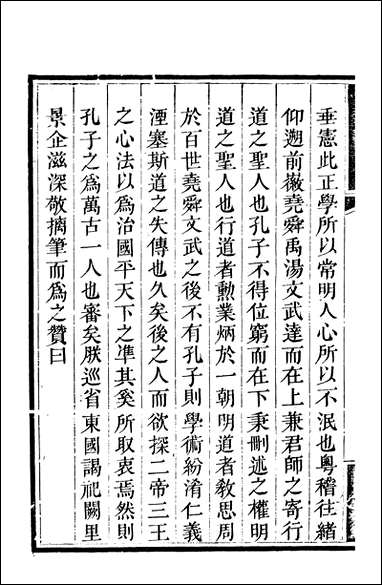 垂憲此正學所以常明人心所以不泯也粵稽往緒
仰遡前徽堯舜禹湯文武達而在上兼君師之寄行
道之聖人也孔子不得位窮而在下秉刪述之權明
道之聖人也行道者勲業炳於一朝明道者敎思周
於百世堯舜文武之後不有孔子則學術紛淆仁義
湮塞斯道之失傳也久矣後之人而欲探二帝三王
之心法以爲治國平天下之準其奚所取衷焉然則
孔子之爲萬古一人也審矣朕巡省東國謁祀闕里
景企滋深敬摛筆而爲之贊曰